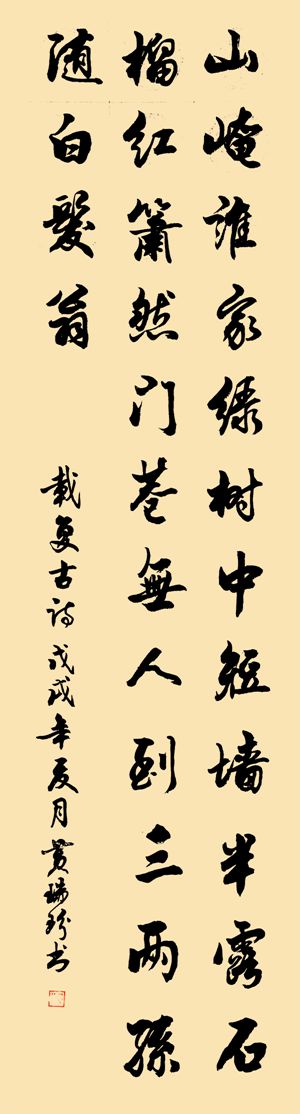 山崦誰家绿树中短墙半露石
榴红簫然门巷無人到三两孫
随白髮翁
載复古诗戊戌年夏月黄瑞书